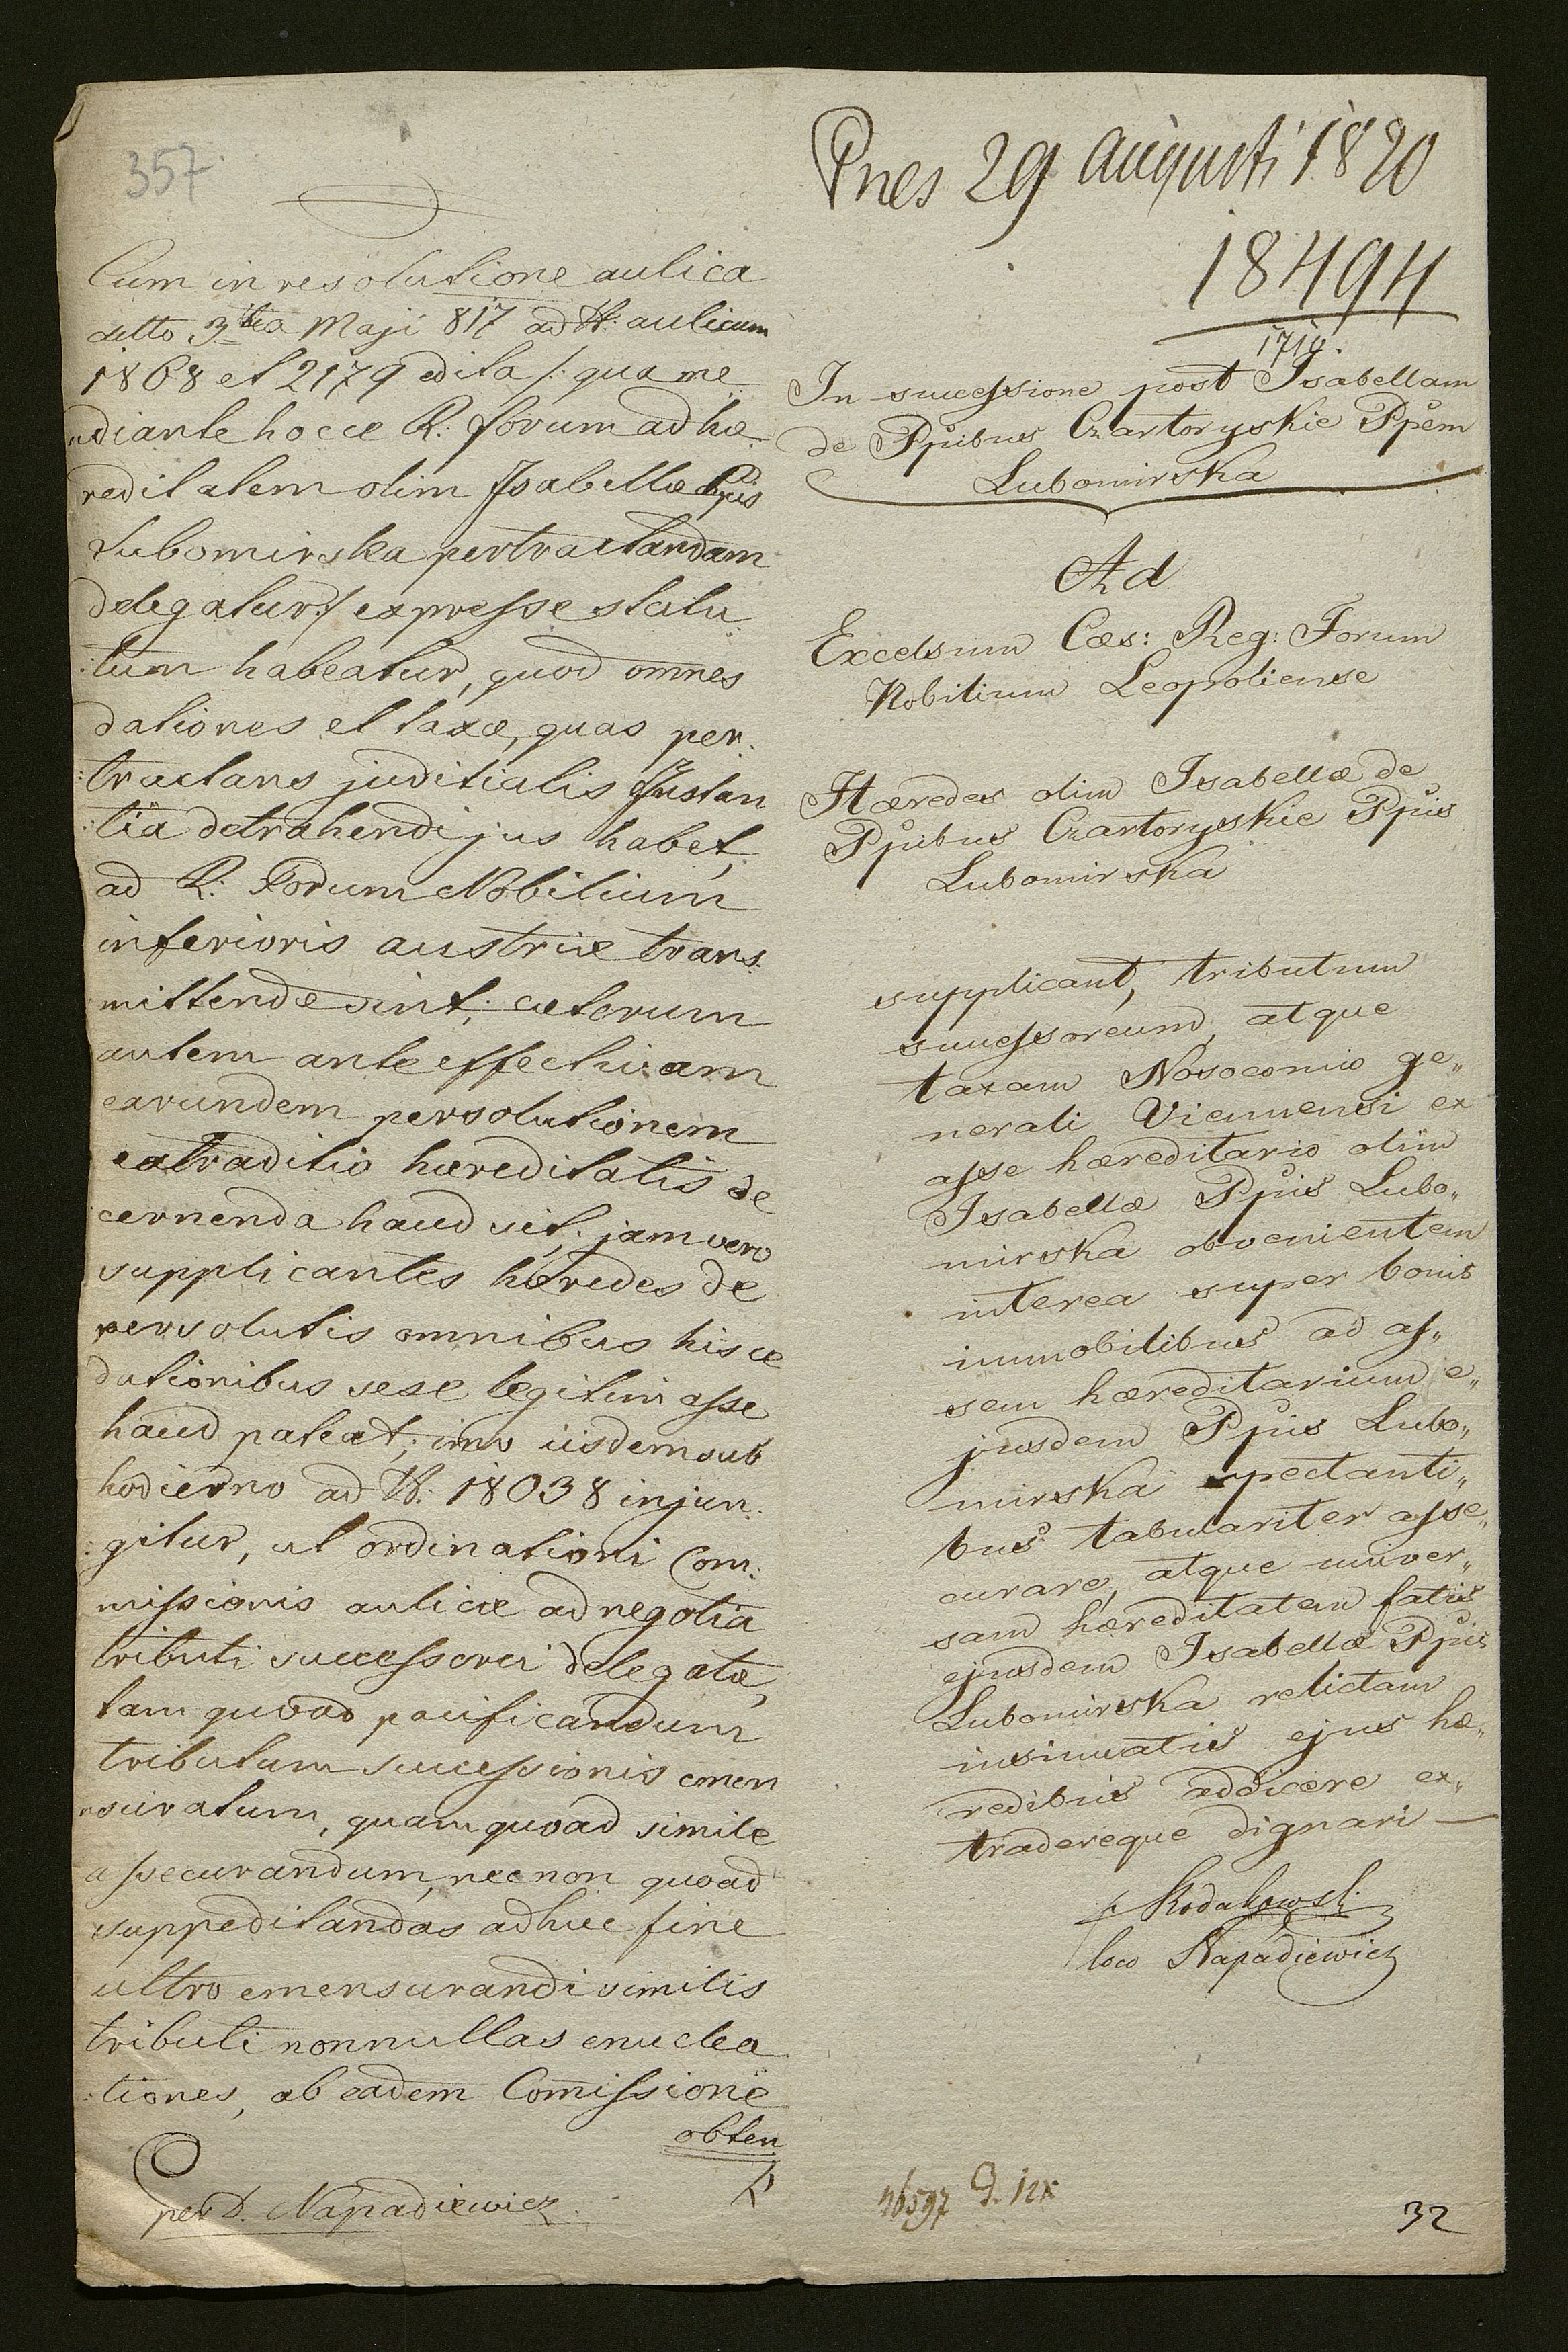 357
Cum in resolutione aulica
ddto 3tia Maji 817 ad N: aulicum
1868 et 2179 edita /: qua me
diante hocce R: forum ad hæ
reditatem olim Isabellæ Ppis
Lubomirska pertractandam
delegatur :/ expresse statu
:tum habeatur, quod omnes
dationes et taxæ, quas per:
:tractans juditialis Instan
:tia detrahendi jus habet,
ad R: Forum Nobilium
inferioris austriæ trans:
mittendæ sint; cæterum
autem ante effectivam
earundem persolutionem
extraditio hæreditatis de
cernenda haud sit; jam vero
supplicantes hæredes de
persolutis omnibus hisce
dationibus sese legitimasse
haud pateat; imo iisdem sub
hodierno ad N: 18038 injun:
:gitur, ut ordinationi Com:
missionis aulicæ ad negotia
tributi successorei delegatæ,
tam quoad pacificandum
tributum successionis emen
suratum, quam quoad simile
assecurandum, nec non quoad
suppeditandas adhuc fine
ultro emensurandi similis
tributi nonnullas enuclea
:tiones, ab eadem Comissione
obten
per D. Napadiewicz
Pnes 29 Augusti 1820
18494
1719.
In successione post Isabellam
de Ppibus Czartoryskie Ppem
Lubomirska
Ad
Excelsum Cæs: Reg: Forum
Nobilium Leopoliense
Hæredes olim Isabellæ de
Ppibus Czartoryskie Ppis
Lubomirska
supplicant, tributum
successoreum, atque
taxam Nosocomio ge„
nerali Viennensi ex
asse hæreditario olim
Isabellæ Ppis Lubo„
mirska obvenientem
interea super bonis
immobilibus ad as„
sem hæreditarium e„
jusdem Ppis Lubo„
mirska spectanti„
bus tabulariter asse„
curare, atque univer„
sam hæreditatem fatis
ejusdem Isabellæ Ppis
Lubomirska relictam
insinuatis ejus hæ„
redibus addicere ex„
tradereque dignari —
Rodakowski
loco Napadiewicz
32